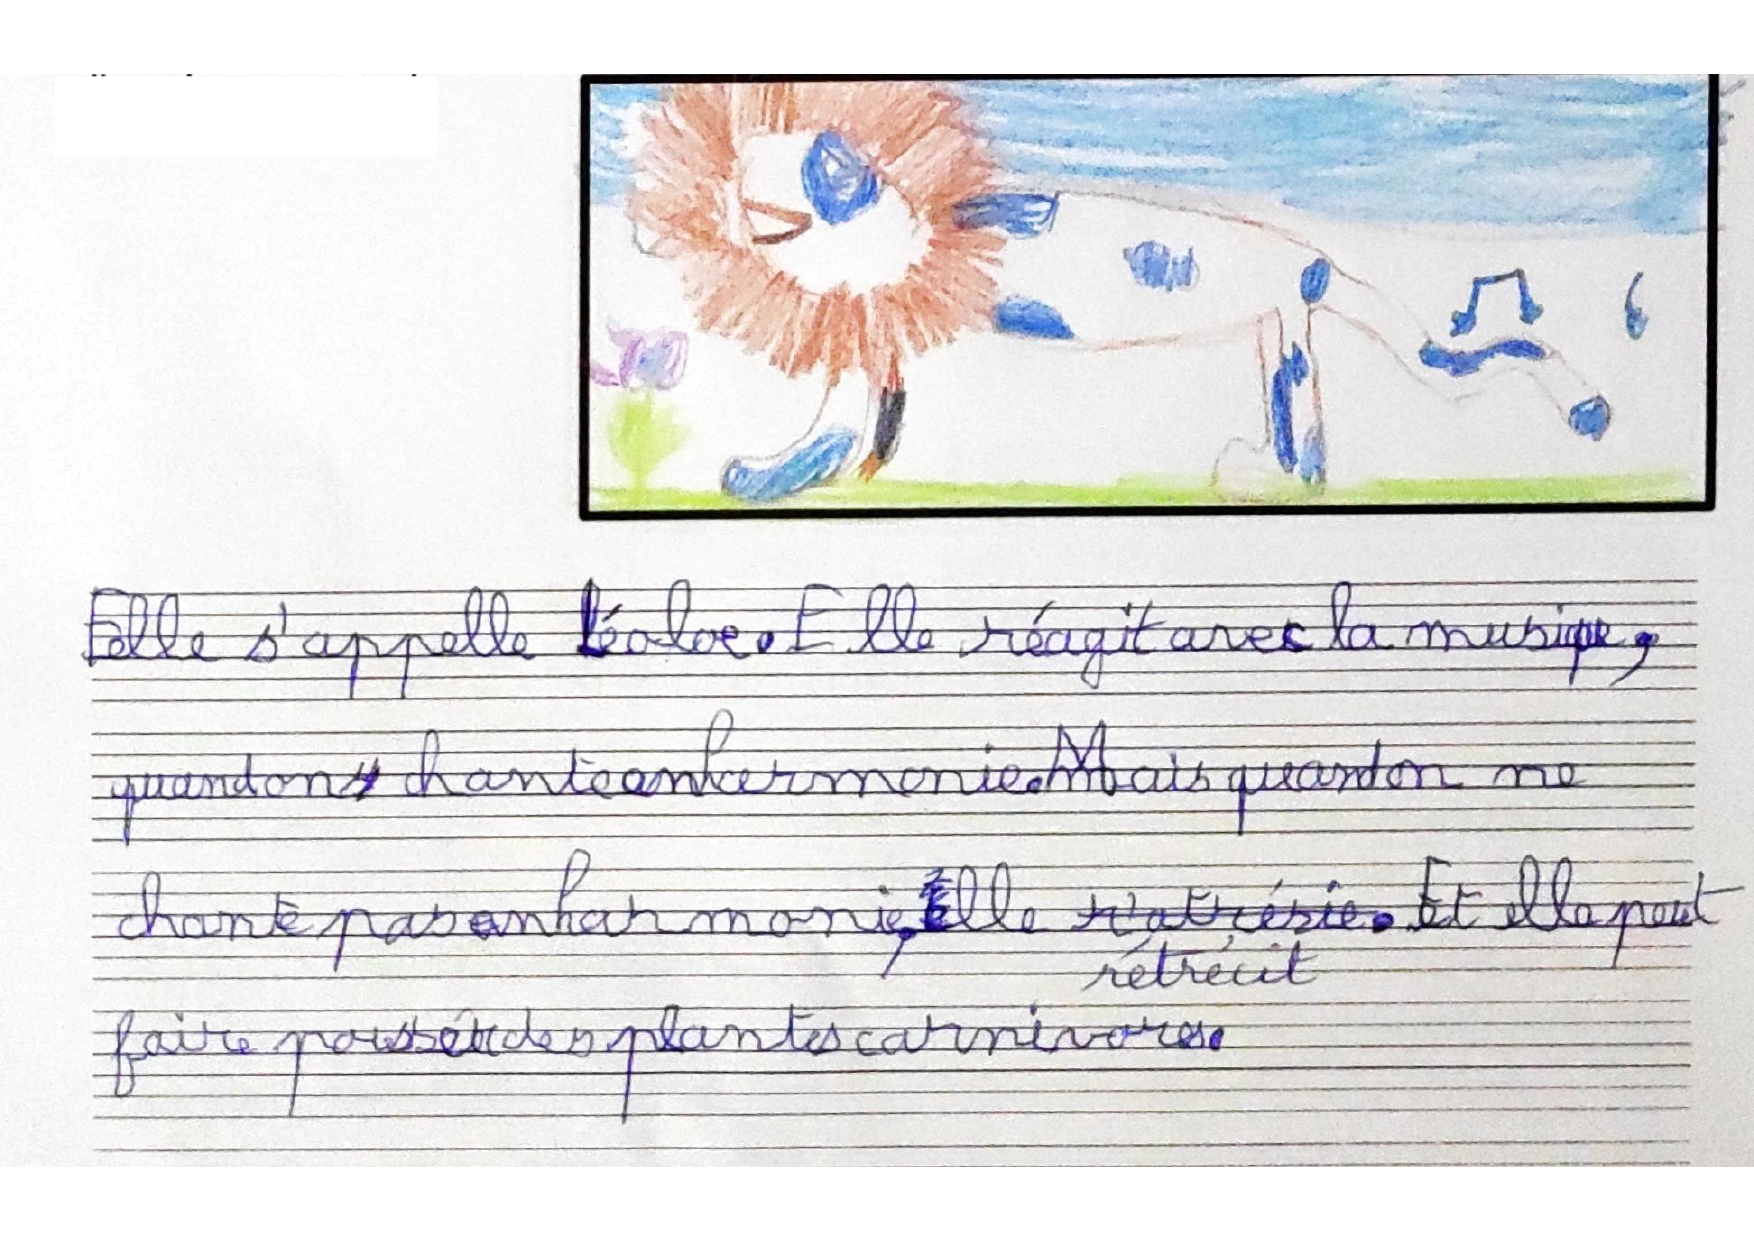 Elle s'appelle Léaloe. Elle réagit avec la musique,
quand on chante en harmonie. Mais quand on ne
chante pas en harmonie, Elle Et elle peut
rétrécit
faire pousser des plantes carnivores.